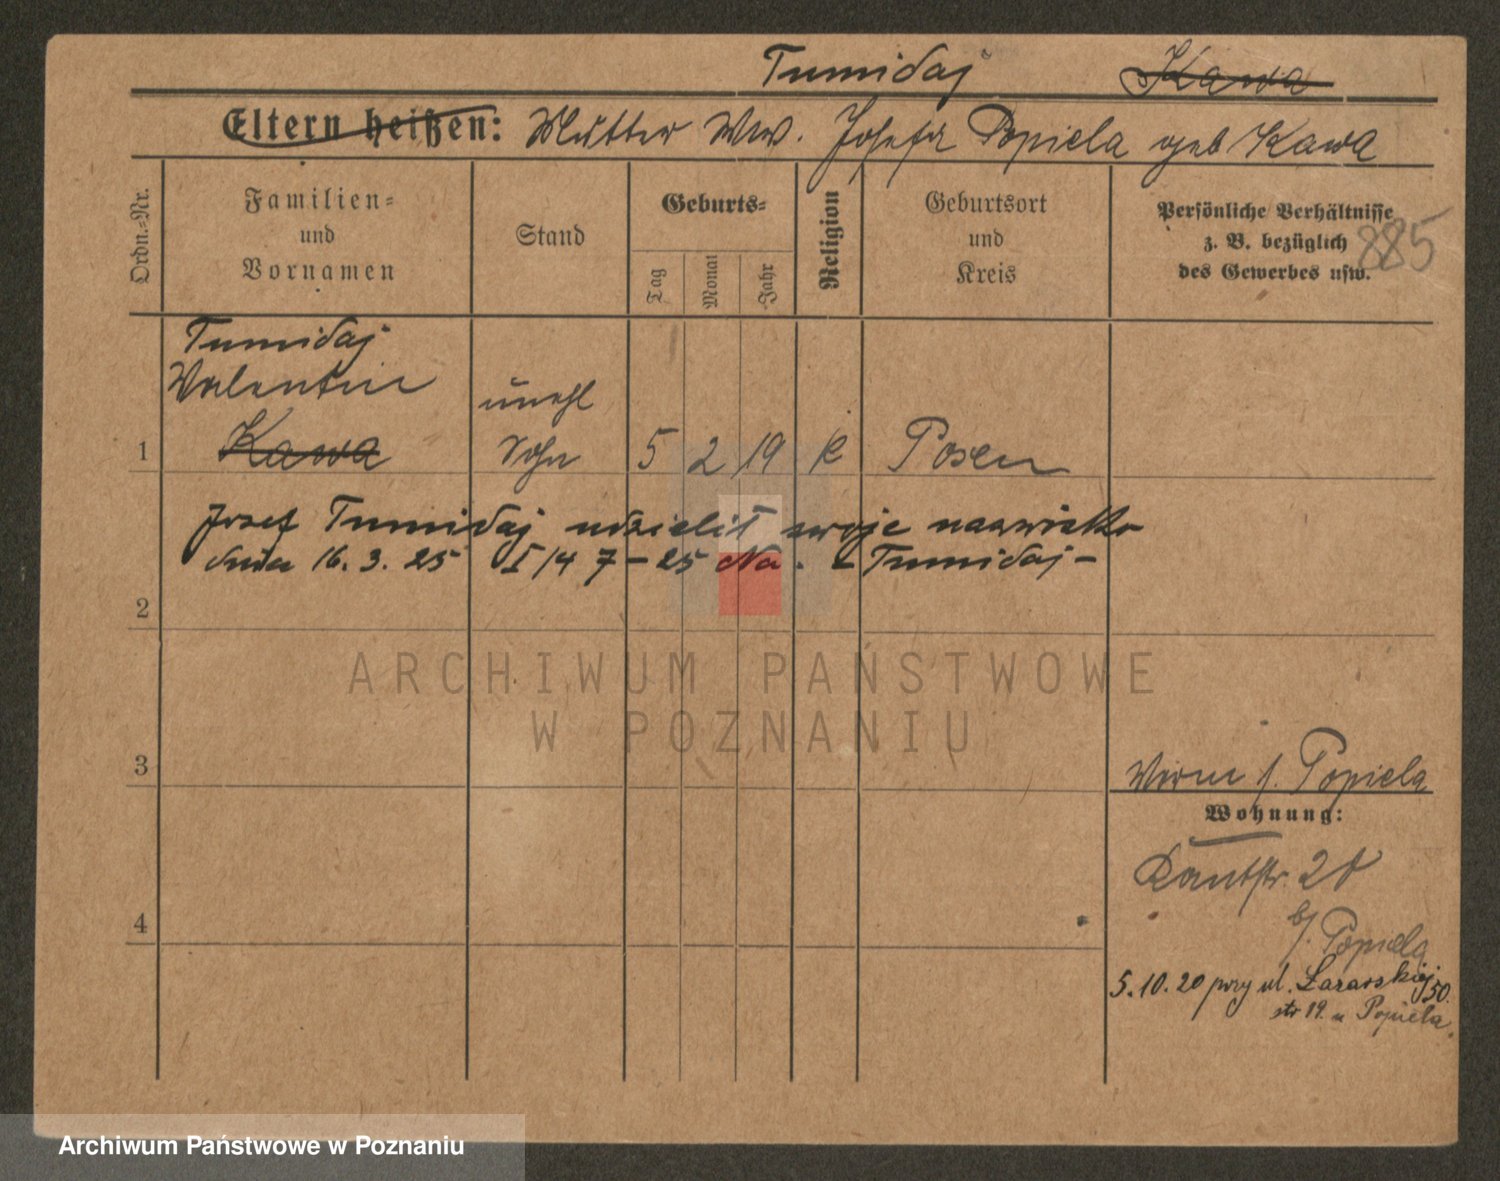 Tumidaj Kawa
Eltern heißen: Mutter Ww. Josefa Popiela geb Kawa
Ordn.-Nr.
Familien-
und
Vornamen
Stand
Geburts-
Tag
Monat
Jahr
Religion
Geburtsort
und
Kreis
Persönliche Verhältnisse
z. B. bezüglich
des Gewerbes usw.
885
Tumidaj
Valentin
unehl
1 Kawa Sohn 5 2 19 k Posen
Josef Tumidaj udzielił swoje nazwisko
dnia 16. 3. 25 I/4 7-25 Na. - Tumidaj -
2
ARCHIWUM PAŃSTWOWE
W POZNANIU
3
Popiela
Wohnung:
Kantstr. 20
b/. Popiela
4
5.10.20 przy ul. Łazarskiej 50.
str 19. u Popiela.
Archiwum Państwowe w Poznaniu